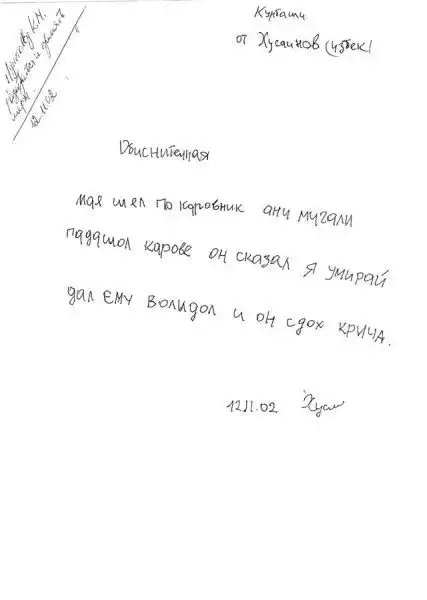 Кунташи
от Хусаинов (узбек)
К.М.
12.11.02
Обиснителная
мая шел по коровник ани мугали
падашол карове он сказал я умирай
дал ему волидол и он сдох крича.
12.11.02 Хуси